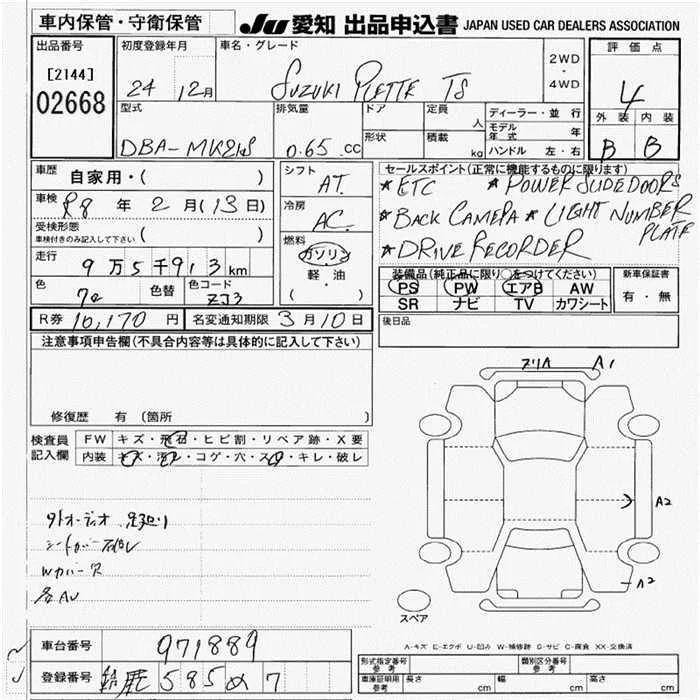 車内保管・守衛保管
JU 愛知 出品申込書 JAPAN USED CAR DEALERS ASSOCIATION
出品番号
[2144]
02668
初度登録年月
24 12月
車名・グレード
SUZUKI PLETTE TS
2WD
・
4WD
評価点
4
外装 内装
B B
型式
DBA-MK21S
排気量
0.65 CC
ドア
形状
定員
人
積載
kg
ディーラー・並行
モデル年式 年
ハンドル 左・右
車歴
自家用・( )
車検 R8 年 2 月(13日)
受検形態
車検付きのみ記入して下さい ( )
走行 9万5千913km
色 7e 色替 色コード ZJ3
シフト
AT.
冷房
AC.
燃料
ガソリン
軽油
( )
セールスポイント(正常に機能するものに限ります)
★ETC ★POWER SLIDEDOORS
★BACK CAMERA ★LIGHT NUMBER PLATE
★DRIVE RECORDER
装備品(純正品に限り○をつけてください)
PS PW エアB AW
SR ナビ TV カワシート
新車保証書
有・無
R券 10,170 円 名変通知期限 3月10日
後日品
注意事項申告欄(不具合内容等は具体的に記入して下さい)
修復歴 有(箇所
検査員記入欄
FW キズ・飛石・ヒビ割・リペア跡・X要
内装 キズ・汚レ・コゲ・穴・スレ・キレ・破レ
外オーディオ
シートカバー
Wカバー
各AU
A1
A2
A2
スペア
A-キズ E-エクボ U-凹み W-補修跡 S-サビ C-腐食 XX-交換済
車台番号 971889
登録番号 鈴鹿 585 め 7
形式指定番号
参考
類別区分番号
参考
車庫証明用
参考
長さ cm 幅 cm 高さ cm